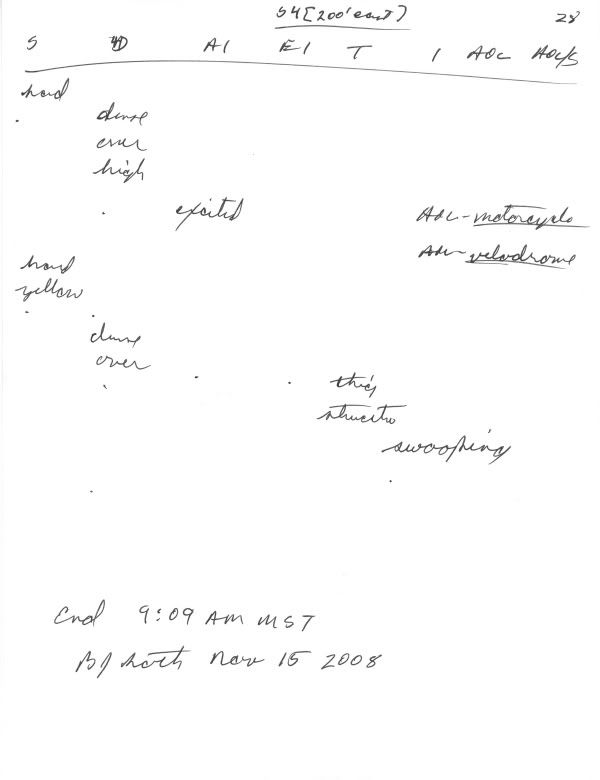 S4 [200' east]
28
S D AI EI T I AOL AOL/S
hard
dense
over
high
excited AOL - motorcycle
AOL - velodrome
hard
yellow
dense
over
thing
structu
swooping
End 9:09 AM MST
north Nov 15 2008